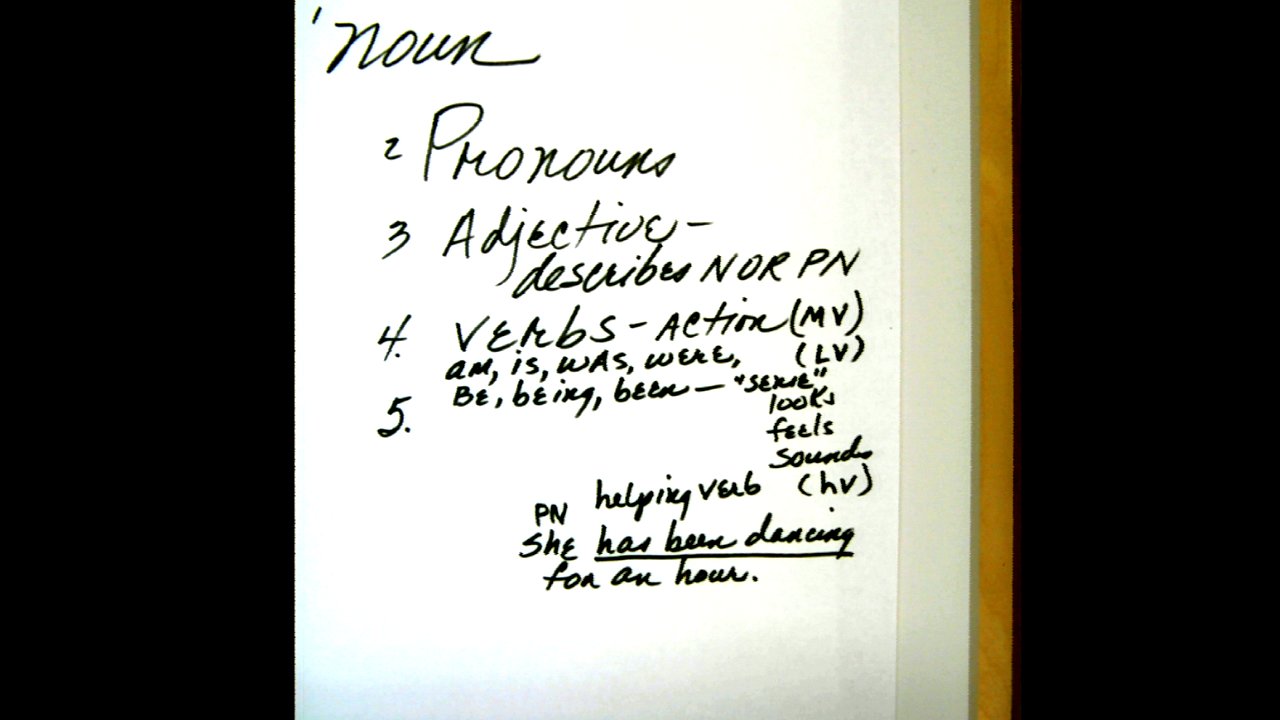 1 noun
2 Pronouns
3 Adjective -
describes N OR PN
4. VERbS - Action (MV)
am, is, was, were, (LV)
BE, being, been - "sense"
looks
feels
5.
sounds
helping verb (hv)
PN
She has been dancing
for an hour.